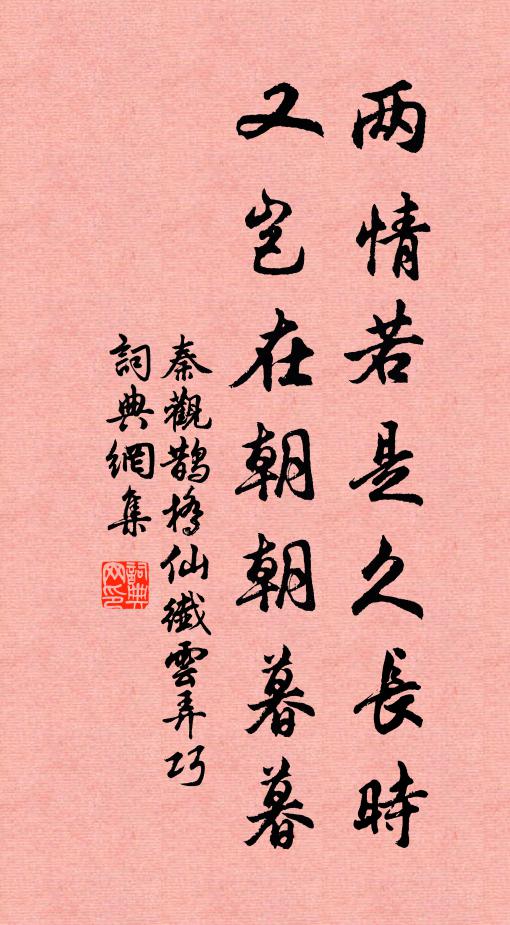 两情若是久長時
又岂在朝朝暮暮
秦觀鵲橋仙纖雲弄巧
詞典網集
詞典网印